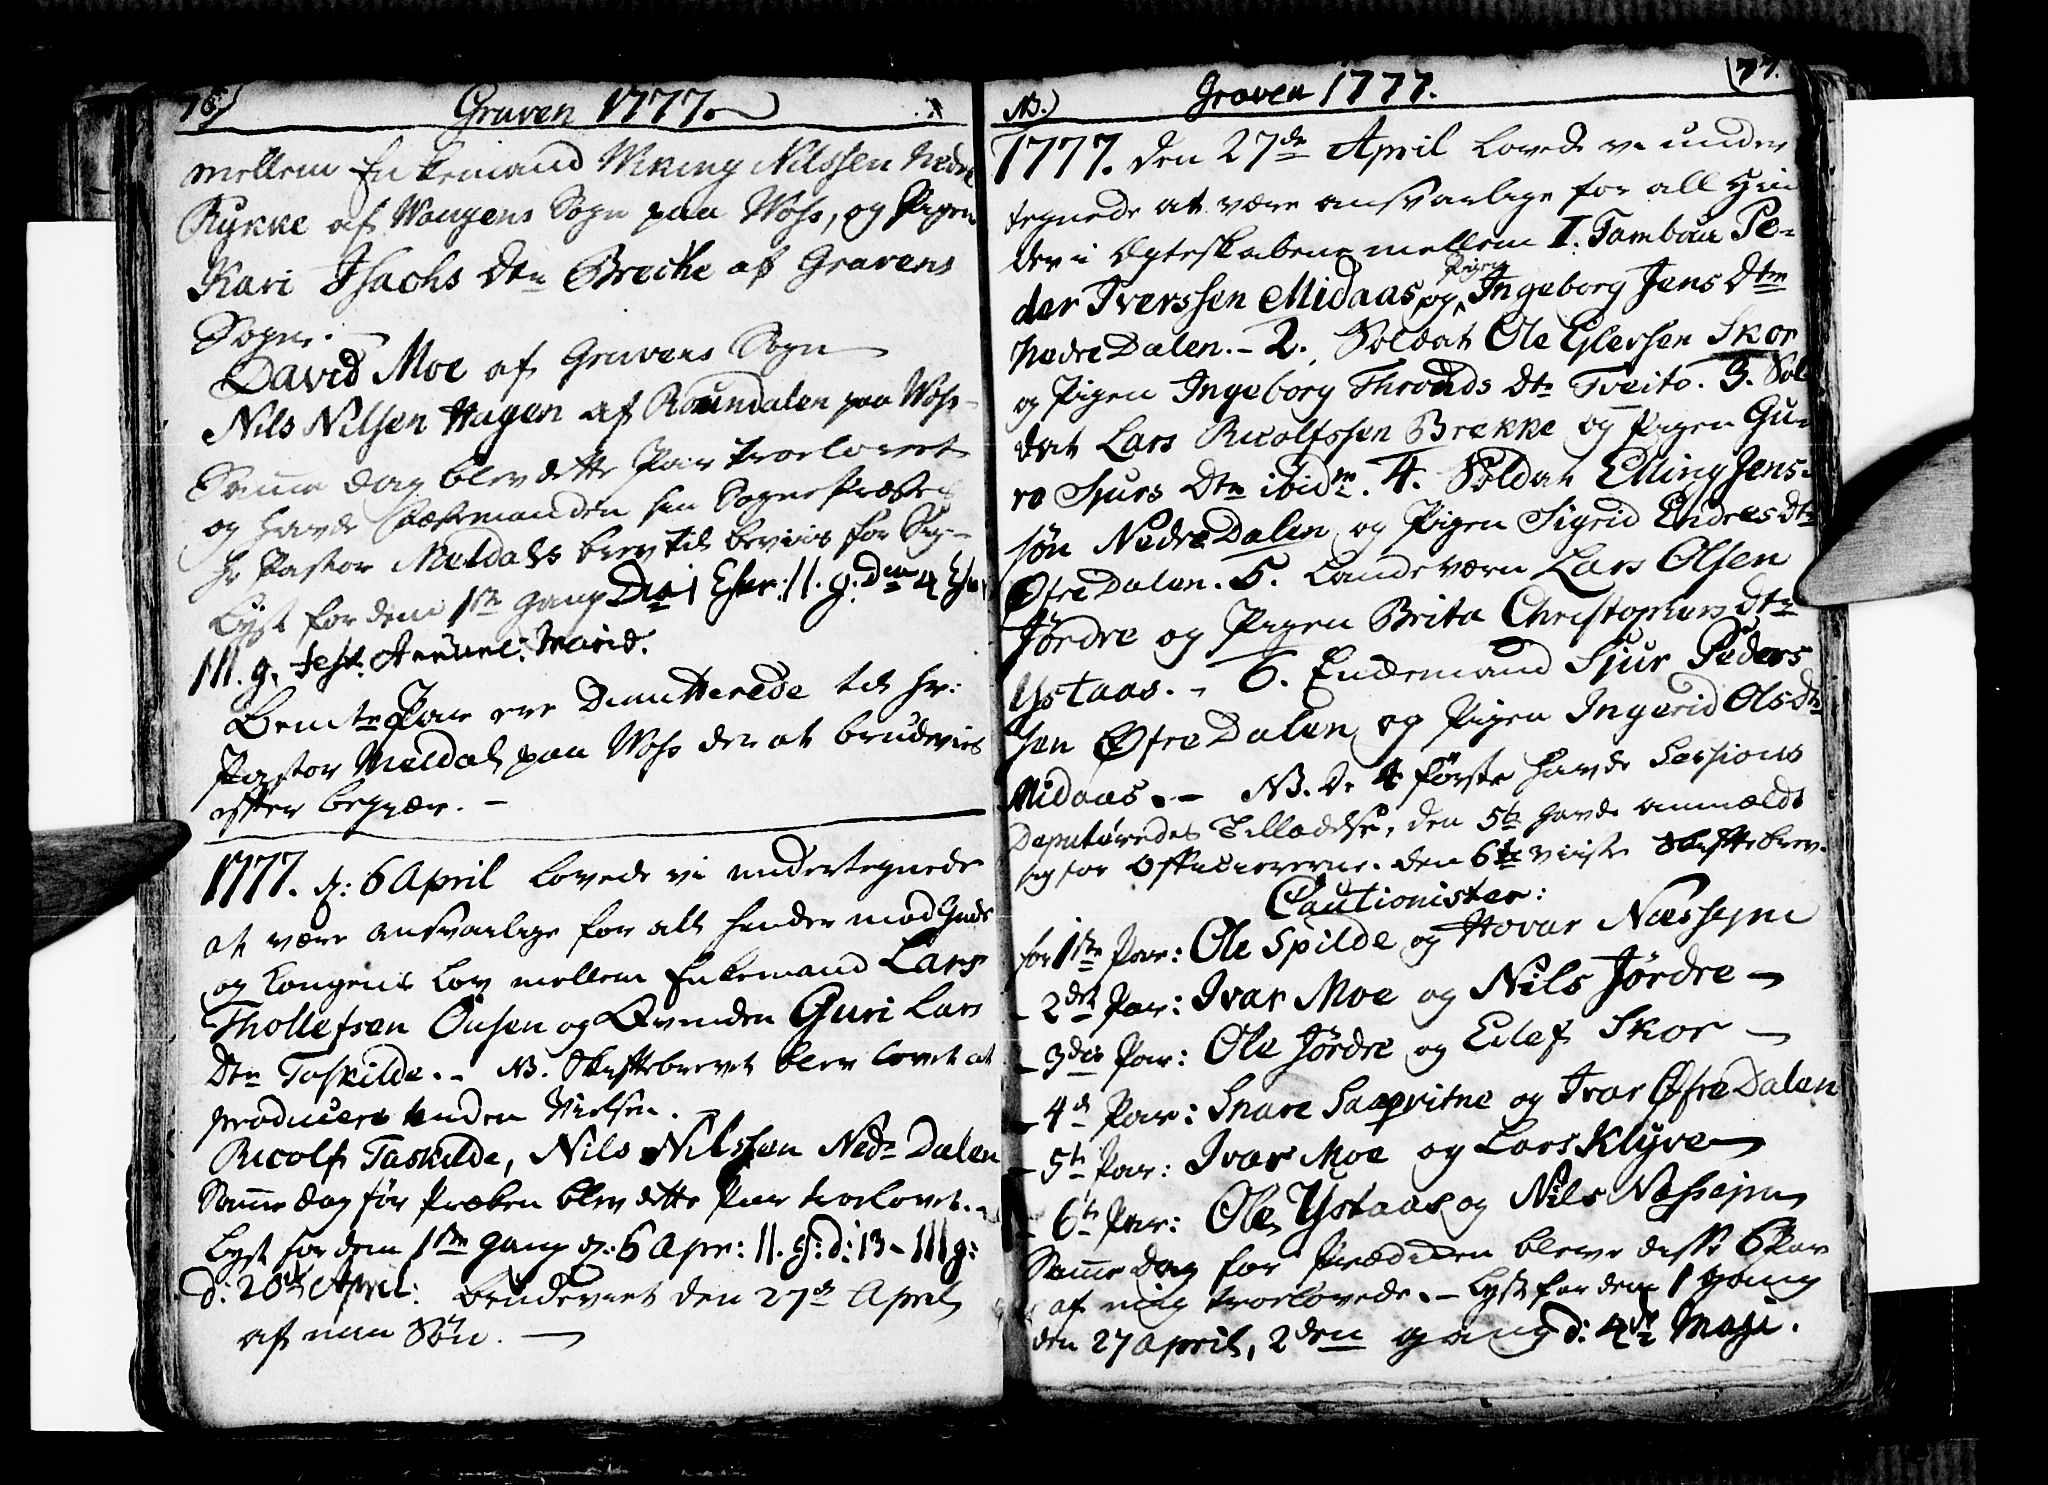 76)
Graven 1777.
mellem Enkemand Viking Nilssen Nedre
Rykke af Wangens Sogn paa Woss, og Pigen
Kari Isachs Dtr Breche af Gravens
Sogn.
David Moe af Gravens Sogn
Nils Nilsen Hagen af Roundalen paa Woss
Samme dag blev dette Par troelovet
og havde sin SognePræstes
Hr Pastor Meldals brev til beviis for sig
Lyst for dem 1ste Gang Dca 1 Epher: II. g: Dca 4 Eph:
III. g. Fest. Annunc: Mariæ.
Bemte Par ere Dimitterede til Hr:
Pastor Meldal paa Woss der at brudevies
efter begiær. —
1777. d: 6 April lovede vi undertegnede
at være ansvarlige for alt hinder mod Guds
og Kongens Lov mellem Enkemand Lars
Thollefsen Onsen og Qvinden Guri Lars
Dtr Taskilde. – NB. Skiftebrevet blev lovet at
producere inden Vielsen.
Ricolf Taskilde, Nils Nilssen Nedr Dalen
Samme dag før Præken blev dette Par troelovet.
Lyst for dem 1ste gang d: 6 Apr: II. g: d: 13 – III g:
d: 20de April: brudeviet den 27de April
af min Søn. —
NB.)
Graven 1777.
(77.
1777. den 27de April lovede vi under
tegnede at være ansvarlige for all Hin
der i Ægteskabene mellem I. Tambour Pe-
der Iverssen Midaas, og Pigen Ingeborg Jens Dtr
Nedre Dalen. – 2. Soldat Ole Eilefssen Skor
og Pigen Ingeborg Thronds Dtr Tveito. 3. Sol
dat Lars Ricolfssen Brekke og Pigen Gu-
ro Sjurs Dtr ibidm. 4. Soldat Elling Jens-
søn Nedre Dalen og Pigen Sigrid Endres Dtr
Øfre Dalen. 5. Landeværn Lars Olsen
Jørdre og Pigen Brita Christophers Dtr
Ystaas. – 6. Enckemand Sjur Peders
sen Øfre Dalen og Pigen Ingerid Ols Dtr
Midaas. – NB. De 4 første havde Sessions
Deputeredes Tilladelse, den 5te havde anmældt
sig for Officiererne. den 6te viiste Skiftebrev.
Cautionister:
for 1ste Par: Ole Spilde og Hovar Næssejm
– 2det Par: Ivar Moe og Nils Jørdre –
– 3die Par: Ole Jørdre og Eilef Skor –
– 4de Par: Snare Saaqvitne og Ivar Øfre Dalen
– 5te Par: Ivar Moe og Lars Klyve
– 6te Par: Ole Ystaas og Nils Næssejm
Samme Dag for Prædiken bleve disse 6 Par
af mig troelovede. – Lyst for dem 1 gang
den 27 April, 2den gang d: 4de Maji.